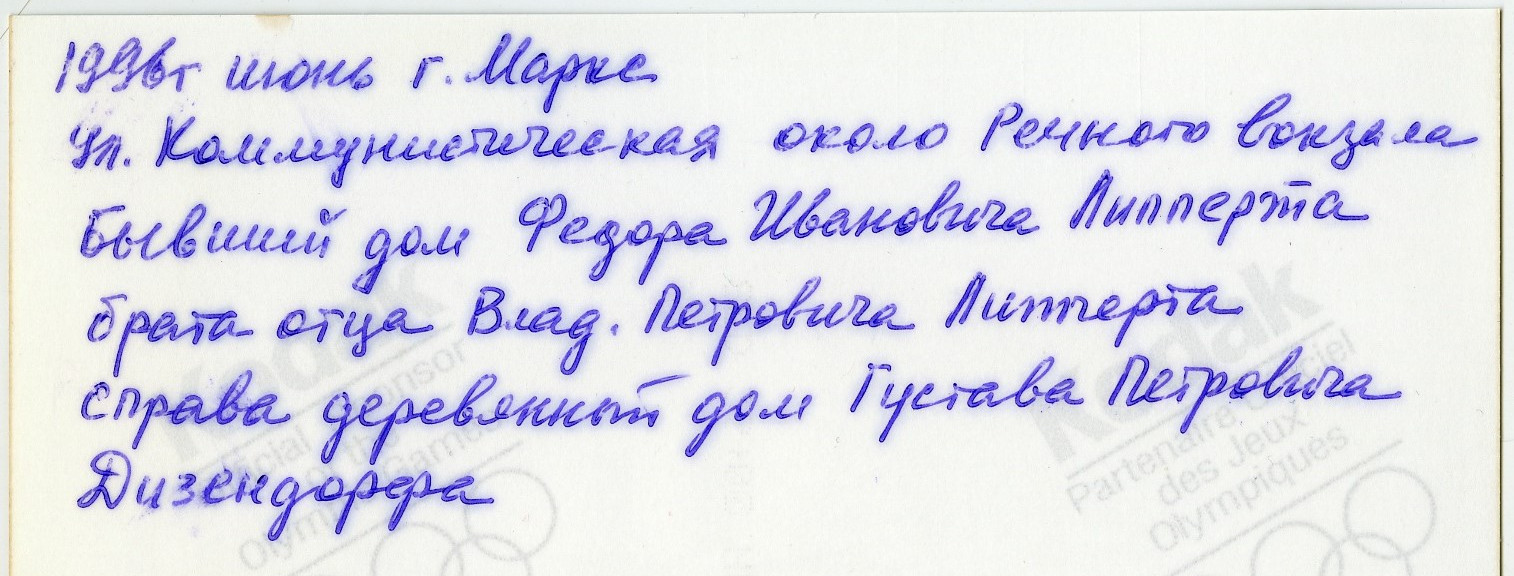 1996г июнь г. Маркс
ул. Коммунистическая около Речного вокзала
Бывший дом Федора Ивановича Липперта
брата отца Влад. Петровича Липперта
справа деревянный дом Густава Петровича
Дизендорфа
Kodak
Official Sponsor
of the
Games
Olym
Kodak
Partenaire Officiel
des Jeux
Olympiques